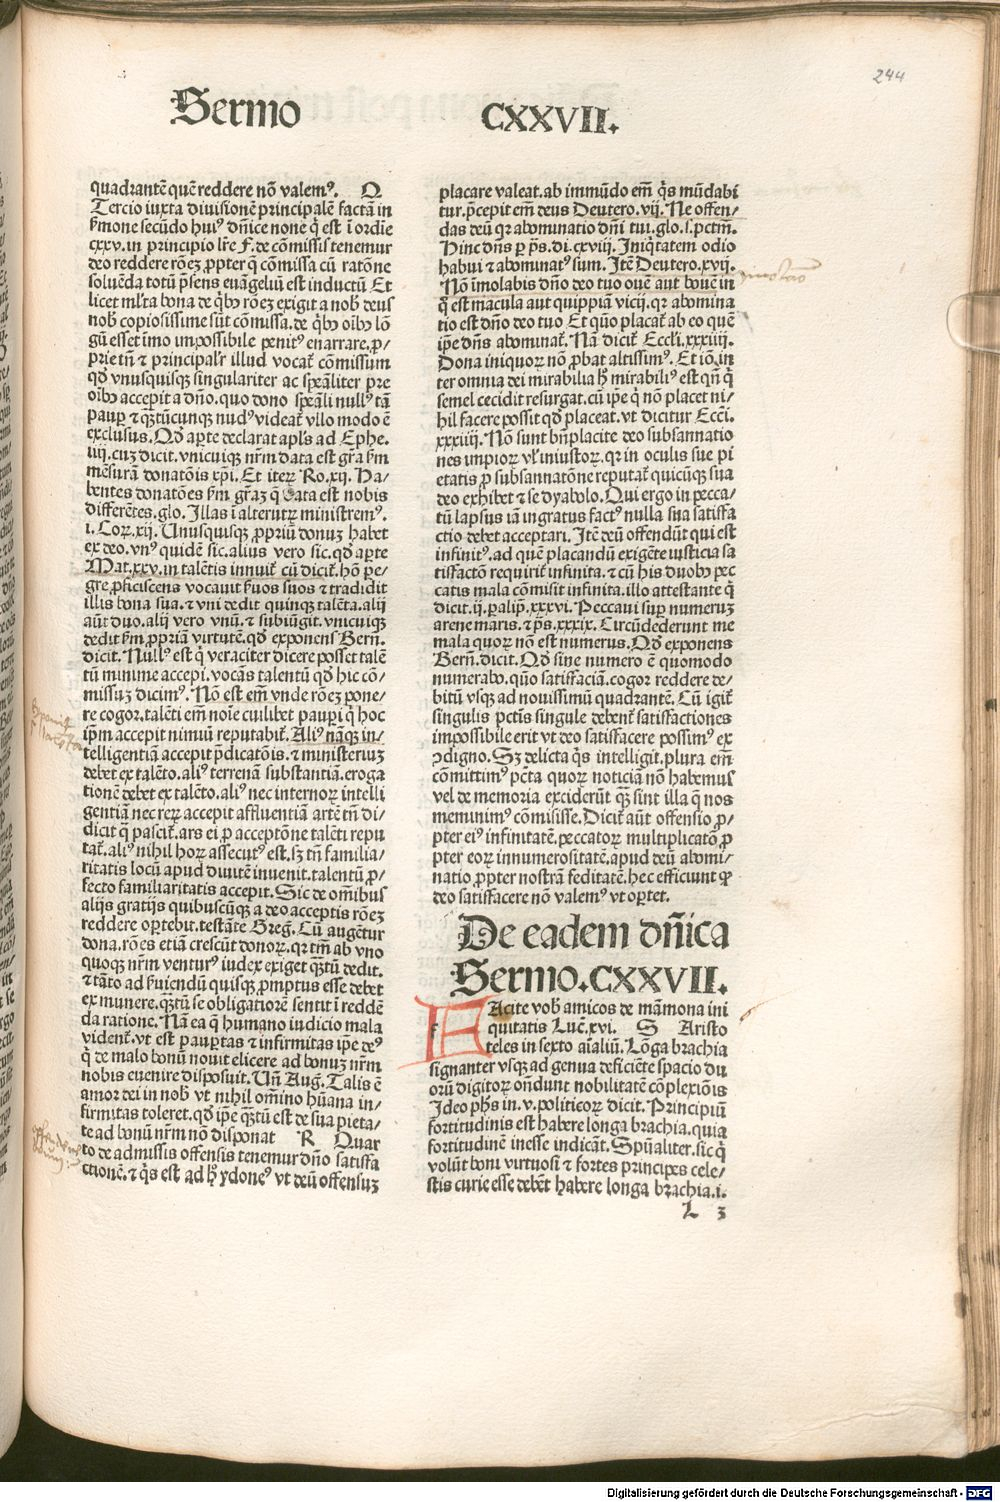 244
Sermo CXXVII.
quadrantē quē reddere nō valemꝰ. Q
Tercio iuxta diuisionē principalē factā in
ẜmone secūdo huiꝰ dn̄ice none q̇ est ī ordīe
cxxv. in principio lr̄e F. de cōmissis tenemur
deo reddere rōeꝫ ꝓpter q̄ cōmissa cū ratōne
soluēda totū p̄sens euāgeliū est inductū Et
licet ml̓ta bona de q̇bꝰ rōeꝫ exigit a nob̄ deus
nob̄ copiosissime sūt cōmissa. de q̇bꝰ oībꝰ lō
gū esset īmo impossibile penitꝰ enarrare. ꝓ/
prie tn̄ ⁊ principalr̄ illud vocat᷑ cōmissum
qd̓ vnusquisqꝫ singulariter ac sp̄ealiter pre
oībꝰ accepit a dn̄o. quo dono sp̄eali nullꝰ tā
pauꝑ ⁊ qꝫtūcunqꝫ nudꝰ videat᷑ vllo modo ē
exclusus. Qd̓ aꝑte declarat apl̓s ad Ephe.
iiij. cuꝫ dicit. vnicuiqꝫ nr̄m data est gr̄a ẜm
mēsurā donatōis xp̄i. Et iteꝝ Ro. xij. Ha/
bentes donatōes ẜm gr̄aꝫ q̄ data est nobis
differētes. glo. Illas ī alterutꝝ ministremꝰ.
i. Coꝝ. xij. Unusquisqꝫ ꝓpriū donuꝫ habet
ex deo. vnꝰ quidē sic. alius vero sic. qd̓ aꝑte
Mat. xxv. in talētis innuit᷑ cū dicit᷑. hō pe/
gre ꝓficiscens vocauit ẜuos suos ⁊ tradidit
illis bona sua. ⁊ vni dedit quinqꝫ talēta. alij
aūt duo. alij vero vnū. ⁊ subiūgit. vnicuiqꝫ
dedit ẜm ꝓpriā virtutē. qd̓ exponens Bern̄.
dicit. Nullꝰ est q̇ veraciter dicere posset talē
tū minime accepi. vocās talentū qd̓ hic cō/
missuꝫ dicimꝰ. Nō est em̄ vnde rōeꝫ pone/
re cogor. talēti em̄ noīe cuilibet pauꝑi q̇ hoc
ip̄m accepit nimiū reputabit᷑. Aliꝰ nāqꝫ in/
telligentiā accepit p̄dicatōis. ⁊ ministeriuꝫ
debet ex talēto. aliꝰ terrenā substantiā. eroga
tionē debet ex talēto. aliꝰ nec internoꝝ intelli
gentiā nec reꝝ accepit affluentiā artē tn̄ di/
dicit q̄ pascit᷑. ars ei ꝓ acceptōne talēti repu
tat᷑. aliꝰ nihil hoꝝ assecutꝰ est. sꝫ tn̄ familia/
ritatis locū apud diuitē inuenit. talentū ꝓ/
fecto familiaritatis accepit. Sic de om̄ibus
alijs gratijs quibuscūqꝫ a deo acceptis rōeꝫ
reddere oꝑtebit. testāte Greg̃. Cū augētur
dona. rōes etiā crescūt donoꝝ. qꝛ tm̄ ab vno
quoqꝫ nr̄m venturꝰ iudex exiget qꝫtū dedit.
⁊ tāto ad ẜuiendū quisqꝫ ꝓmptus esse debet
ex munere. qꝫtū se obligatiorē sentit ī reddē
da ratione. Nā ea q̄ humano iudicio mala
vident᷑. vt est pauꝑtas ⁊ infirmitas ip̄e deꝰ
q̇ de malo bonū nouit elicere ad bonuꝫ nr̄m
nobis euenire disposuit. Un̄ Aug̃. Talis ē
amor dei in nob̄ vt nihil om̄ino hūana in/
firmitas toleret. qd̓ ip̄e qꝫtū est de sua pieta/
te ad bonū nr̄m nō disponat R Quar
to de admissis offensis tenemur dn̄o satisfa
ctionē. ⁊ q̇s est ad h̄ ydoneꝰ vt deū offensuꝫ
placare valeat. ab immūdo em̄ q̇s mūdabi
tur. p̄cepit em̄ deus Deutero. vij. Ne offen/
das deū qꝛ abominatio dn̄i tui. glo. s. pctm̄.
Hinc dn̄s ꝑ p̄s. di. cxviij. Iniq̇tatem odio
habui ⁊ abominatꝰ sum. Itē Deutero. xvij.
Nō īmolabis dn̄o deo tuo ouē aut bouē in
q̊ est macula aut quippiā vicij. qꝛ abomina
tio est dn̄o deo tuo Et quō placat᷑ ab eo quē
ip̄e dn̄s abominat᷑. Nā dicit᷑ Eccl̓i. xxxiiij.
Dona iniquoꝝ nō ꝓbat altissimꝰ. Et iō in
ter omnia dei mirabilia h̄ mirabiliꝰ est qn̄ q̇
semel cecidit resurgat. cū ip̄e q̇ nō placet ni/
hil facere possit qd̓ placeat. vt dicitur Eccl̓i.
xxxiiij. Nō sunt bn̄placite deo subsannatio
nes impioꝝ vl̓ iniustoꝝ. qꝛ in oculis sue pi
etatis ꝓ subsannatōne reputat᷑ quicūqꝫ sua
deo exhibet ⁊ se dyabolo. Qui ergo in pecca/
tū lapsus iā ingratus factꝰ nulla sua satisfa
ctio debet acceptari. Itē deū offendūt qui est
infinitꝰ. ad quē placandū exigēte iusticia sa
tisfactō requirit᷑ infinita. ⁊ cū his duobꝰ pec
catis mala cōmisit infinita. illo attestante q̇
dicit. ij. ꝑalip̄. xxxvi. Peccaui suꝑ numeruꝫ
arene maris. ⁊ p̄s. xxxix. Circūdederunt me
mala quoꝝ nō est numerus. Qd̓ exponens
Bern̄. dicit. Qd̓ sine numero ē quomodo
numerabo. quō satisfaciā. cogor reddere de/
bitū vsqꝫ ad nouissimū quadrantē. Cū igit᷑
singulis pctīs singule debent᷑ satisfactiones
impossibile erit vt deo satisfacere possimꝰ ex
ↄdigno. Sꝫ delicta q̇s intelligit. plura em̄
cōmittimꝰ pctā quoꝝ noticiā nō habemus
vel de memoria exciderūt qꝫ sint illa q̄ nos
meminimꝰ cōmisisse. Dicit᷑ aūt offensio ꝓ/
pter eiꝰ infinitatē. peccatoꝝ multiplicatō ꝓ
pter eoꝝ innumerositatē. apud deū abomi/
natio ꝓpter nostrā feditatē. hec efficiunt ꝙ
deo satisfacere nō valemꝰ vt oꝑtet.
De eadem dn̄ica
Sermo. CXXVII.
FAcite vob̄ amicos de māmona ini
quitatis Luc̄. xvi. S Aristo
teles in sexto aīaliū. Lōga brachia
signanter vsqꝫ ad genua deficiēte spacio du
orū digitoꝝ on̄dunt nobilitatē cōplexiōis
Ideo ph̄s in. v. politicoꝝ dicit. Principiū
fortitudinis est habere longa brachia. quia
fortitudinē inesse indicāt. Spūaliter. sic q̇
volūt boni virtuosi ⁊ fortes principes cele/
stis curie esse debēt habere longa brachia. i.
L 3
Digitalisierung gefördert durch die Deutsche Forschungsgemeinschaft - DFG